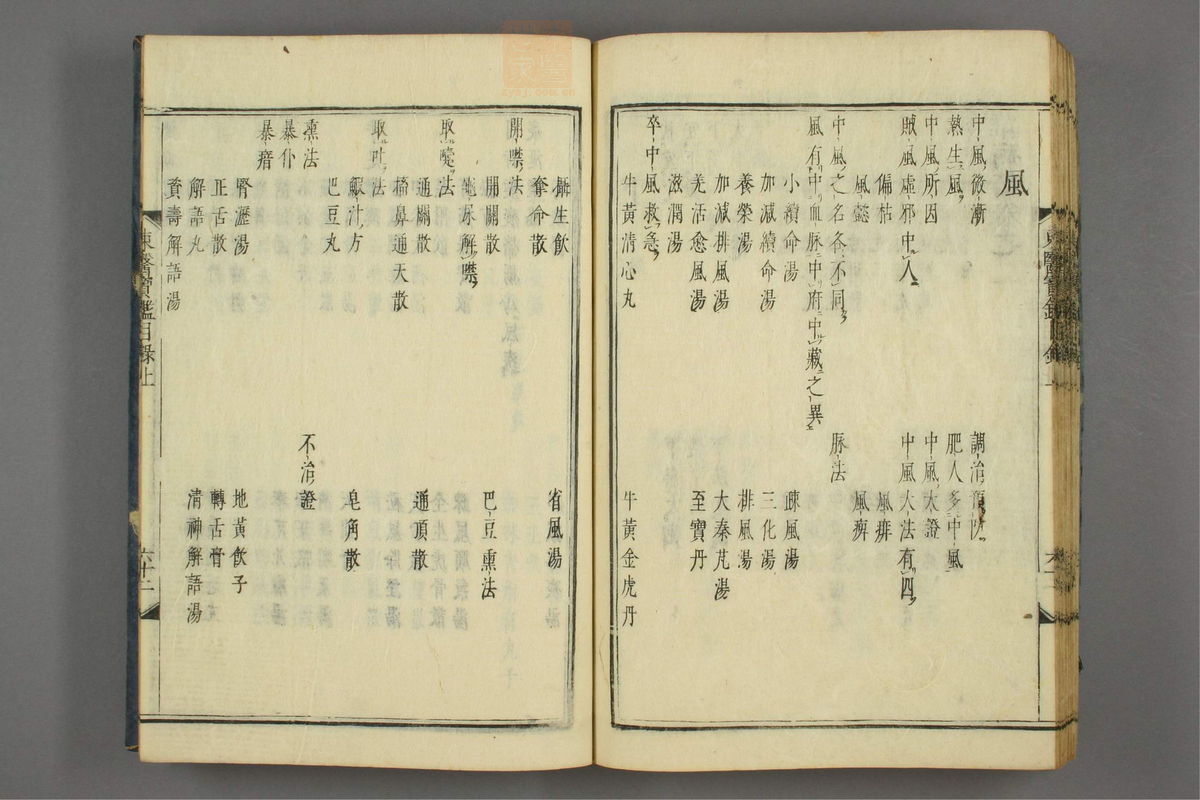 風
中風微漸
調治預防
熱生風
肥人多中風
中風所因
中風大證
賊風虛邪中人
中風大法有四
偏枯
風痱
風懿
風痺
中風之名各不同
脉法
風有中血脉中府中藏之異
小續命湯
疎風湯
加減續命湯
三化湯
養榮湯
排風湯
加減排風湯
大秦艽湯
羌活愈風湯
至寶丹
滋潤湯
卒中風救急
牛黃清心丸
牛黃金虎丹
攝生飲
省風湯
奪命散
開噤法
開關散
巴豆熏法
龜尿解噤
取嚏法
通關散
通頂散
搐鼻通天散
取吐法
鰕汁方
皂角散
巴豆丸
熏法
不治證
暴仆
暴瘖
腎瀝湯
地黃飲子
正舌散
轉舌膏
解語丸
清神解語湯
資壽解語湯
東醫寶鑑目錄上
六十二